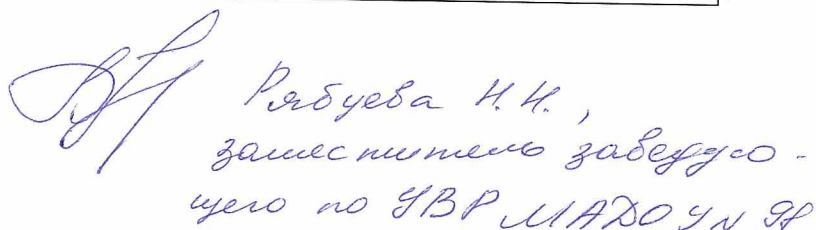 Рябцева Н.Н.,
заместитель заведую-
щего по УВР МАДОУ N 98